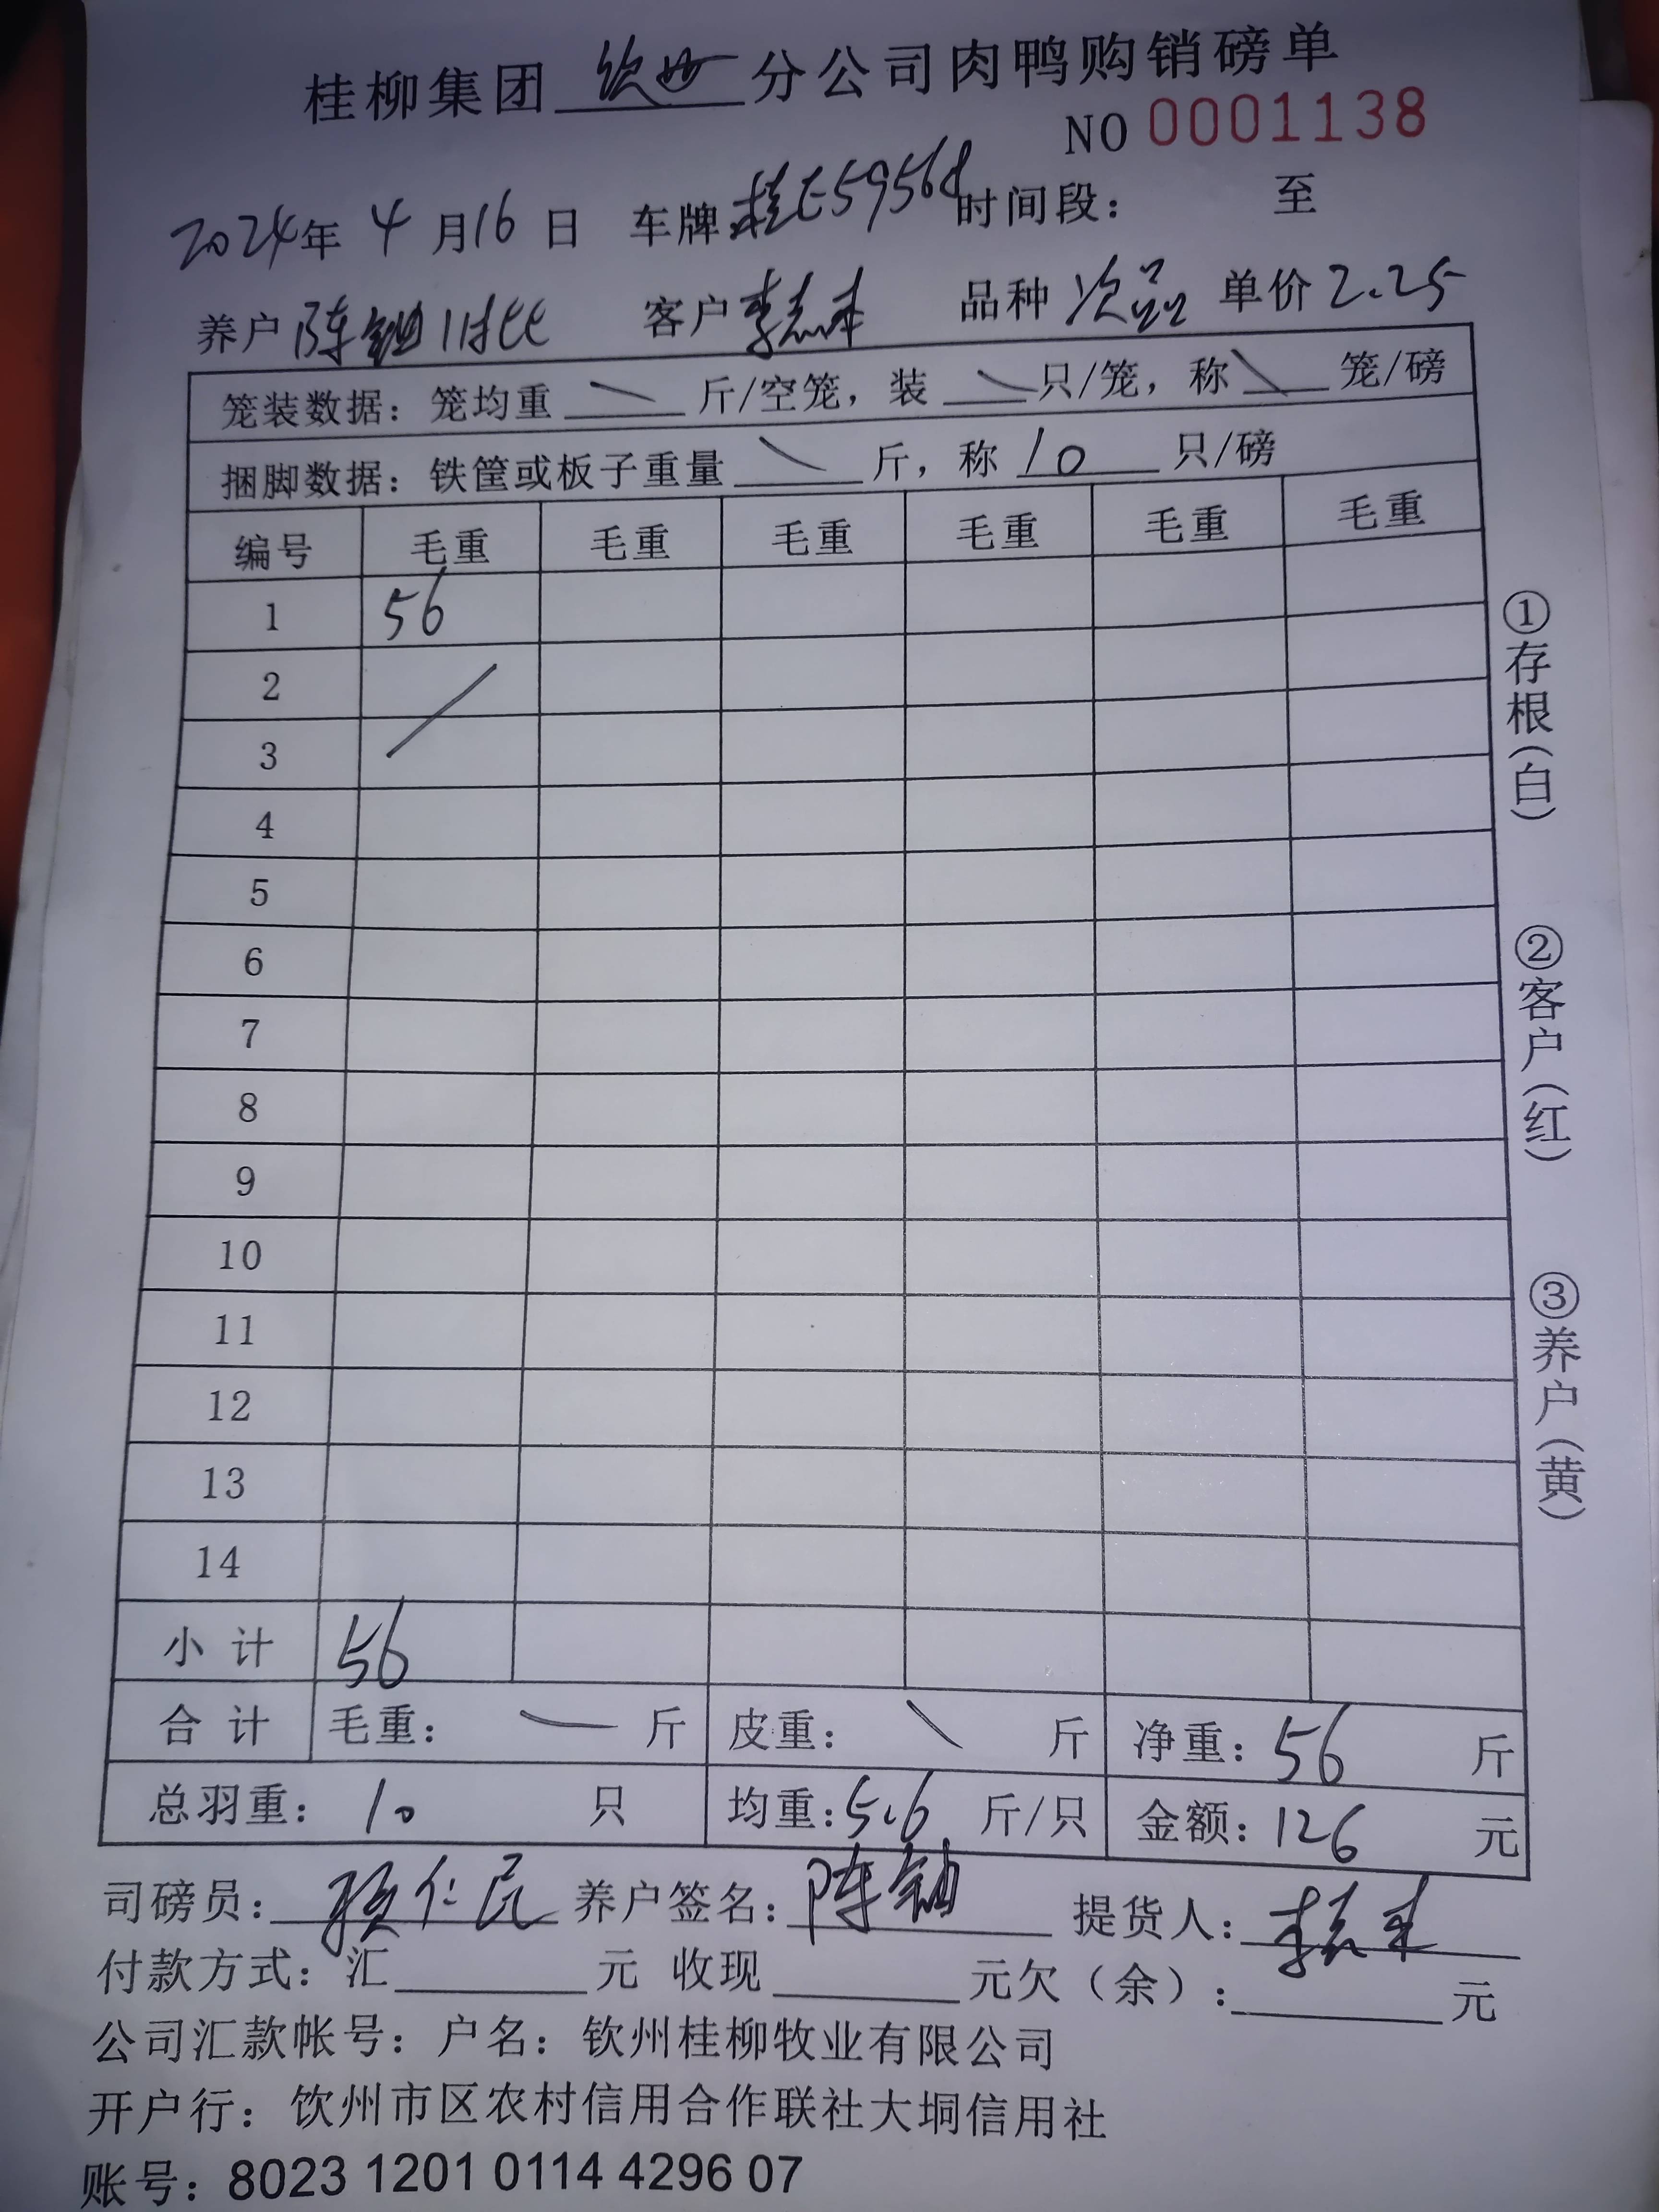 桂柳集团 钦州 分公司肉鸭购销磅单
NO 0001138
2024年 4 月16 日 车牌 桂E59568 时间段： 至
养户 陈 11批 客户 李志 品种 次品 单价 2.25
笼装数据：笼均重 斤/空笼，装 只/笼，称 笼/磅
捆脚数据：铁筐或板子重量 斤，称 10 只/磅
编号 毛重 毛重 毛重 毛重 毛重 毛重
1 56
2
3
4
5
6
7
8
9
10
11
12
13
14
小计 56
合计 毛重： 斤 皮重： 斤 净重：56 斤
总羽重：10 只 均重：5.6 斤/只 金额：126 元
司磅员： 仁民 养户签名：陈 提货人：李志
付款方式：汇 元 收现 元欠（余）： 元
公司汇款帐号：户名：钦州桂柳牧业有限公司
开户行：钦州市区农村信用合作联社大垌信用社
账号：8023 1201 0114 4296 07
①存根（白）
②客户（红）
③养户（黄）